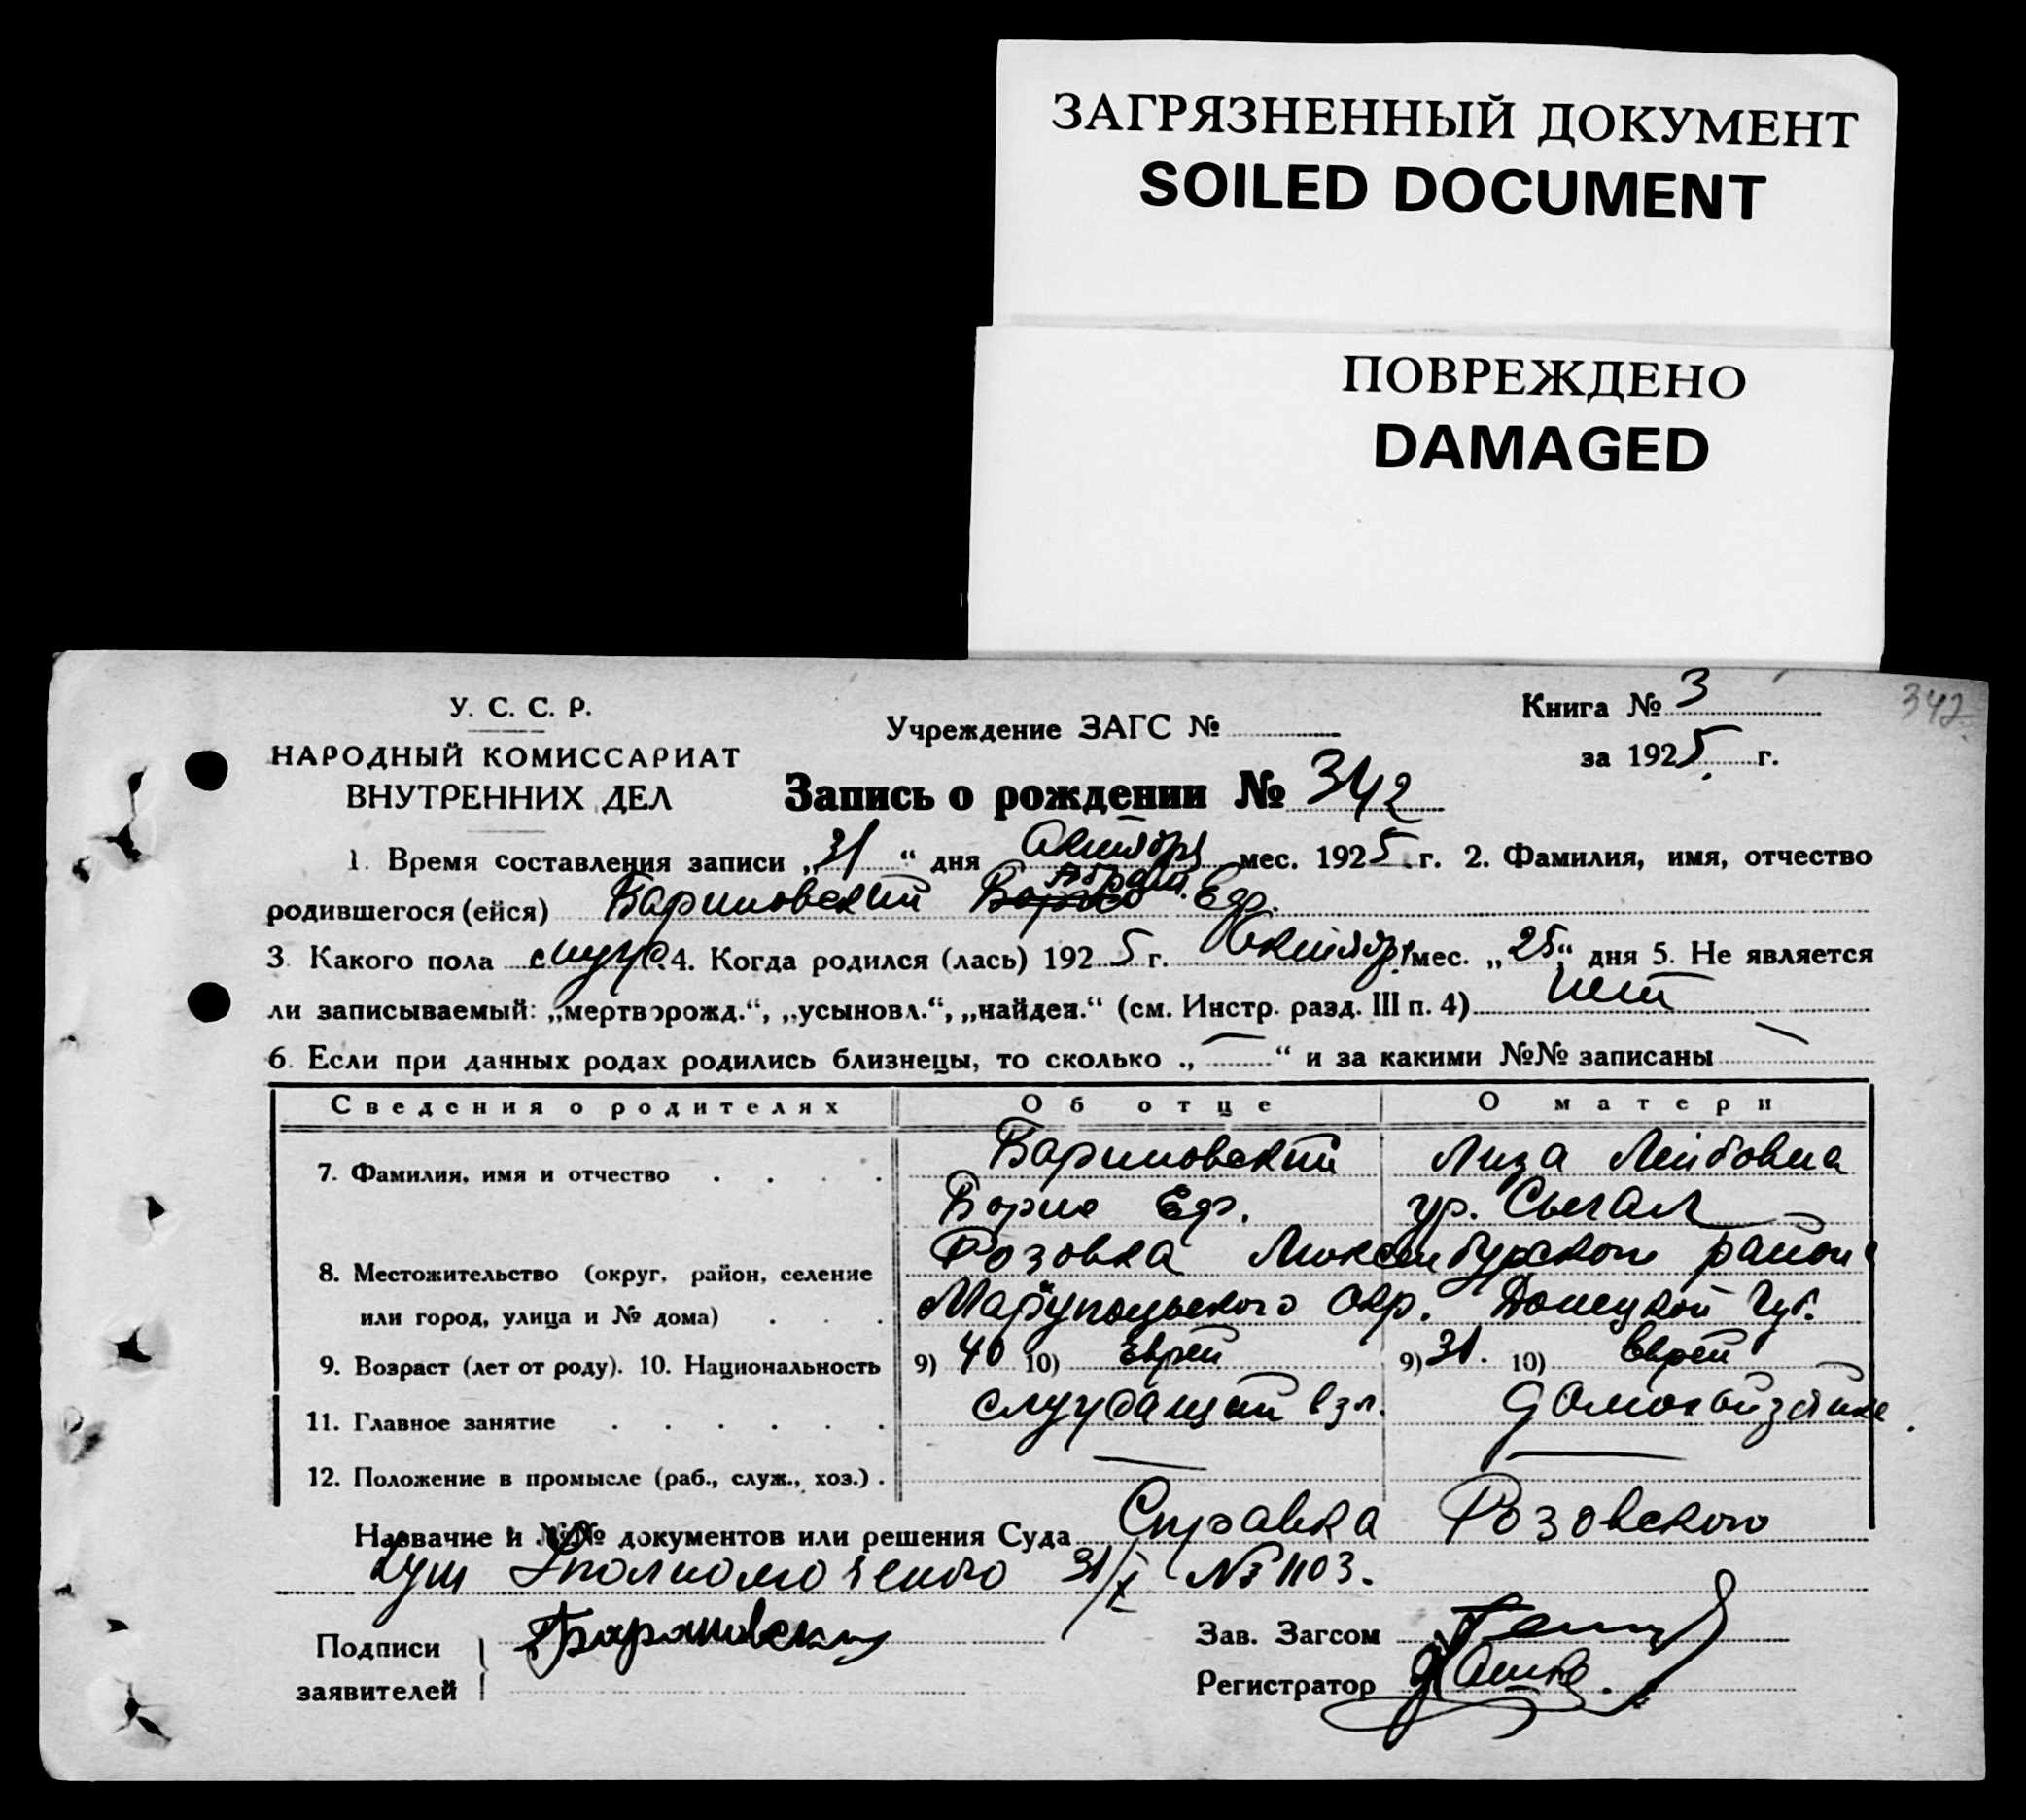 ЗАГРЯЗНЕННЫЙ ДОКУМЕНТ
SOILED DOCUMENT
ПОВРЕЖДЕНО
DAMAGED
У. С. С. Р.
НАРОДНЫЙ КОМИССАРИАТ
ВНУТРЕННИХ ДЕЛ
Учреждение ЗАГС №
Книга № 3
за 1925 г.
342
Запись о рождении № 342
1. Время составления записи „31“ дня Октября мес. 1925 г. 2. Фамилия, имя, отчество
родившегося (ейся) Бариновский Абрам. Еф.
3. Какого пола муж. 4. Когда родился (лась) 1925 г. Октября мес. „25“ дня 5. Не является
ли записываемый: „мертворожд.“, „усыновл.“, „найден.“ (см. Инстр. разд. III п. 4) Нет
6. Если при данных родах родились близнецы, то сколько „—“ и за какими №№ записаны —
Сведения о родителях Об отце О матери
7. Фамилия, имя и отчество Бариновский Лиза Лейбовна
Борис Еф. ур. Сыгал
8. Местожительство (округ, район, селение Розовка Люксембургского района
или город, улица и № дома) Мариупольского Окр. Донецкой Губ.
9. Возраст (лет от роду). 10. Национальность 9) 40 10) Еврей 9) 31. 10) Еврей
11. Главное занятие служащий домохозяйка
12. Положение в промысле (раб., служ., хоз.) . — —
Название и №№ документов или решения Суда Справка Розовского
Уполномоченого 31/X № 1103.
Подписи
заявителей
Барановский
Зав. Загсом
Регистратор